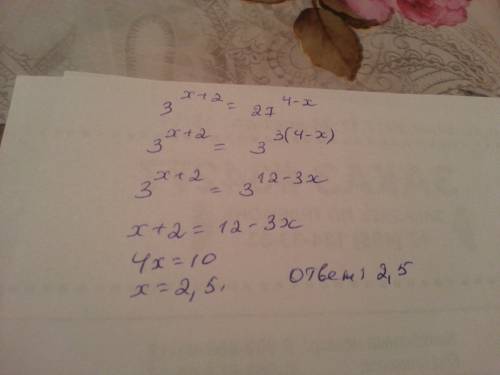 3^{x+2} = 27^{4-x}
3^{x+2} = 3^{3(4-x)}
3^{x+2} = 3^{12-3x}
x+2 = 12-3x
4x = 10
x = 2,5. ответ: 2,5